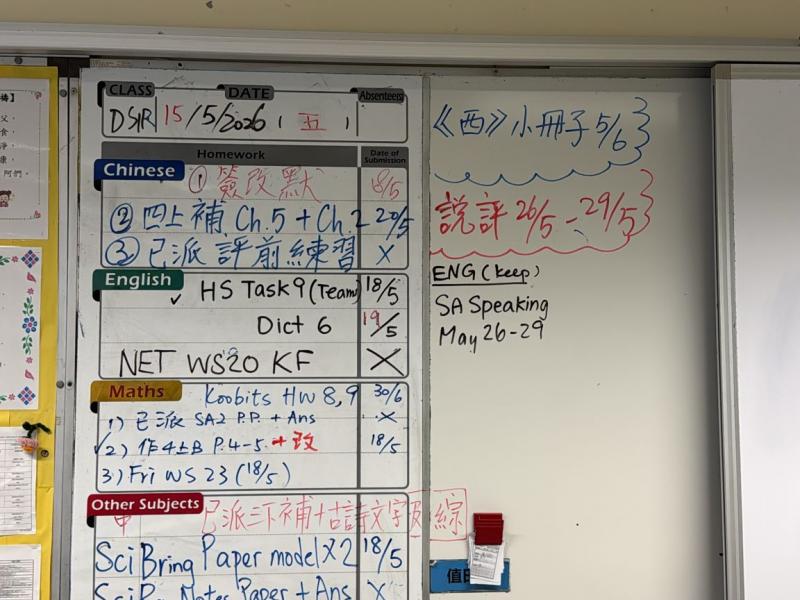 CLASS DATE Absentees
DSIR 15/5/2026 (五)
Homework Date of Submission
Chinese ① 簽改默 18/5
② 四上補 Ch.5 + Ch.2 20/5
③ 已派評前練習 X
English
✓ HS Task 9 (Team) 18/5
Dict 6 19/5
NET WS20 KF X
Maths Koobits HW 8, 9 30/6
1) 已派 SA2 P.P. + Ans X
✓2) 作4上B P.4-5 + 改 18/5
3) Fri WS 23 (18/5)
Other Subjects
中 已派三下補+古詩文字 線
Sci Bring Paper model X2 18/5
Notes Paper + Ans X
《西》小冊子 5/6
説評 26/5 - 29/5
ENG (keep)
SA Speaking
May 26-29
值